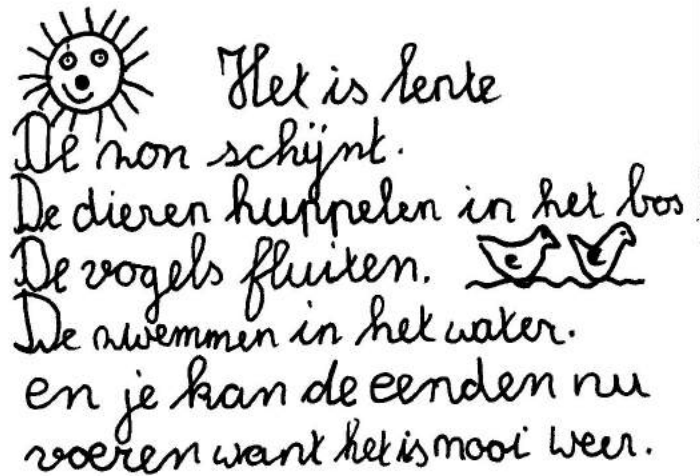 Het is lente
De zon schijnt.
De dieren huppelen in het bos
De vogels fluiten.
De zwemmen in het water.
en je kan de eenden nu
voeren want het is mooi weer.